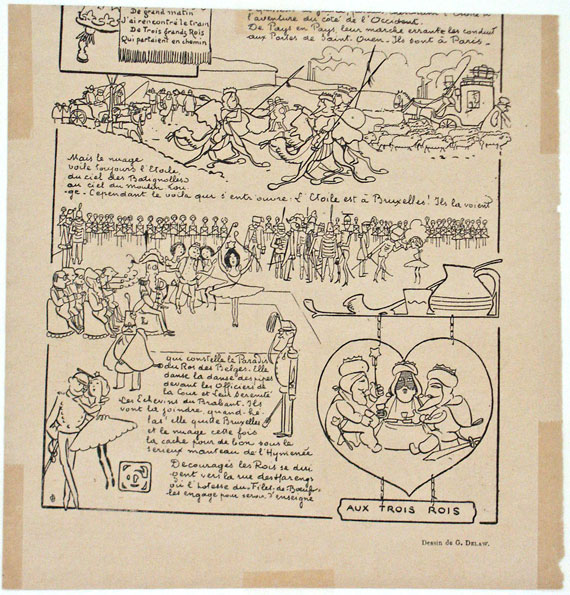 De grand matin
J'ai rencontré le train
De Trois grands Rois
Qui partaient en chemin
l'aventure du côté de l'Occident.
De Pays en Pays, leur marche errante les conduit
aux Portes de Saint. Ouen. Ils sont à Paris.
Mais le nuage
voile toujours l'Etoile
du ciel des Batignolles
au ciel du Moulin Rou
ge. Cependant le voile que s'entr'ouvre: L'Etoile est à Bruxelles! Ils la voient
L
qui constelle le Paradis
du Roi des Belges. Elle
danse la danse des pipes
devant les Officiers de
la Cour et Leur Serenité
Les Echevins du Brabant. Ils
vont la joindre quand, hé-
las! elle quitte Bruxelles
et le nuage cette fois
la cache pour de bon sous le
serieux manteau de l'Hymenée
Decouragés les Rois se diri
gent vers la rue des Harengs
où l'Hotesse du Filet de Boeuf
les engage pour servir d'enseigne
AUX TROIS ROIS
Dessin de G. DELAW.